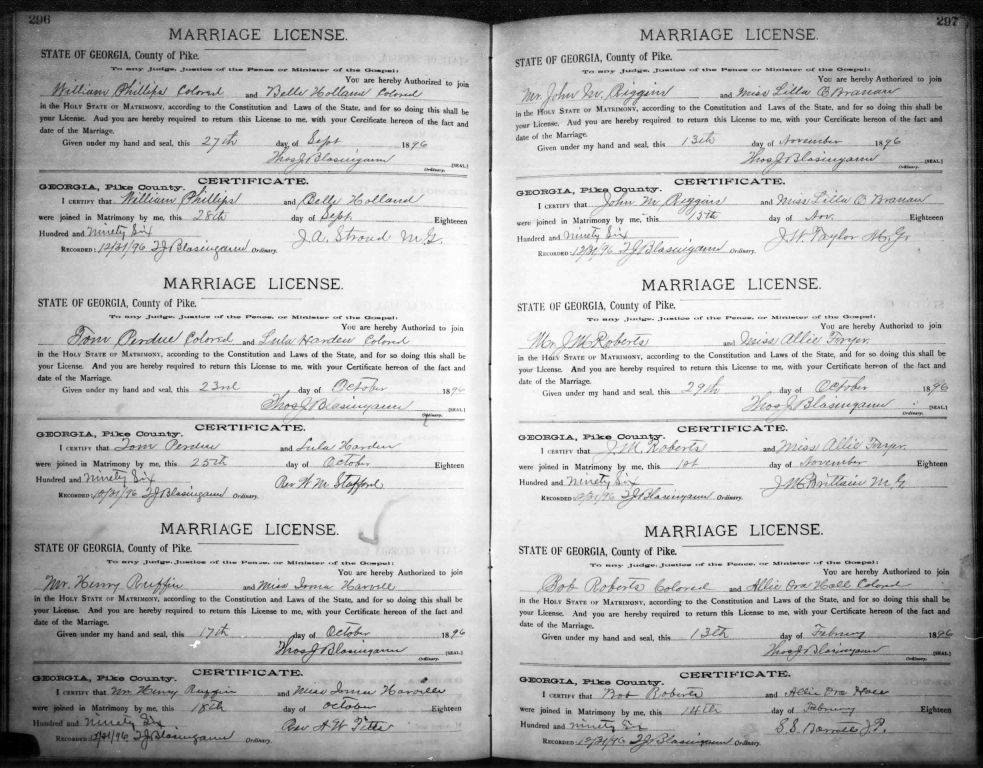 296
MARRIAGE LICENSE.
STATE OF GEORGIA, County of Pike.
To any Judge, Justice of the Peace or Minister of the Gospel:
You are hereby Authorized to join
William Phillips Colored and Belle Holland Colored
in the Holy State of Matrimony, according to the Constitution and Laws of the State, and for so doing this shall be
your License. And you are hereby required to return this License to me, with your Certificate hereon of the fact and
date of the Marriage.
Given under my hand and seal, this 27th day of Sept 1896
Thos J Blasingame [SEAL.]
Ordinary.
CERTIFICATE.
GEORGIA, Pike County.
I certify that William Phillips and Belle Holland
were joined in Matrimony by me, this 28th day of Sept. Eighteen
Hundred and Ninety Six J. A. Stroud M.G.
Recorded: 12/31/96 T J Blasingame Ordinary.
MARRIAGE LICENSE.
STATE OF GEORGIA, County of Pike.
To any Judge, Justice of the Peace, or Minister of the Gospel:
You are hereby Authorized to join
Tom Perdue Colored and Lula Harden Colored
in the Holy State of Matrimony, according to the Constitution and Laws of the State, and for so doing this shall be
your License. And you are hereby required to return this License to me, with your Certificate hereon of the fact and
date of the Marriage.
Given under my hand and seal, this 23rd day of October 1896
Thos J Blasingame [SEAL.]
Ordinary.
CERTIFICATE.
GEORGIA, Pike County.
I certify that Tom Perdue and Lula Harden
were joined in Matrimony by me, this 25th day of October Eighteen
Hundred and Ninety Six Rev W. M. Stafford
Recorded: 12/31/96 T J Blasingame Ordinary.
MARRIAGE LICENSE.
STATE OF GEORGIA, County of Pike.
To any Judge, Justice of the Peace, or Minister of the Gospel:
You are hereby Authorized to join
Mr. Henry Ruffin and Miss Irma
in the Holy State of Matrimony, according to the Constitution and Laws of the State, and for so doing this shall be
your License. And you are hereby required to return this License to me, with your Certificate hereon of the fact and
date of the Marriage.
Given under my hand and seal, this 17th day of October 1896
Thos J Blasingame [SEAL.]
Ordinary.
CERTIFICATE.
GEORGIA, Pike County.
I certify that Mr. Henry Ruffin and Miss Irma
were joined in Matrimony by me, this 18th day of October Eighteen
Hundred and Ninety Six Rev W
Recorded: 12/31/96 T J Blasingame Ordinary.
297
MARRIAGE LICENSE.
STATE OF GEORGIA, County of Pike.
To any Judge, Justice of the Peace or Minister of the Gospel:
You are hereby Authorized to join
Mr. John M. Riggins and Miss Lilla O Branan
in the Holy State of Matrimony, according to the Constitution and Laws of the State, and for so doing this shall be
your License. And you are hereby required to return this License to me, with your Certificate hereon of the fact and
date of the Marriage.
Given under my hand and seal, this 13th day of November 1896
Thos J Blasingame [SEAL.]
Ordinary.
CERTIFICATE.
GEORGIA, Pike County.
I certify that John M Riggins and Miss Lilla O Branan
were joined in Matrimony by me, this 15th day of Nov. Eighteen
Hundred and Ninety Six J. W. Taylor M. G.
Recorded: 12/31/96 T J Blasingame Ordinary.
MARRIAGE LICENSE.
STATE OF GEORGIA, County of Pike.
To any Judge, Justice of the Peace, or Minister of the Gospel:
You are hereby Authorized to join
Mr. J. M. Roberts and Miss Allie
in the Holy State of Matrimony, according to the Constitution and Laws of the State, and for so doing this shall be
your License. And you are hereby required to return this License to me, with your Certificate hereon of the fact and
date of the Marriage.
Given under my hand and seal, this 29th day of October 1896
Thos J Blasingame [SEAL.]
Ordinary.
CERTIFICATE.
GEORGIA, Pike County.
I certify that J. M. Roberts and Miss Allie
were joined in Matrimony by me, this 1st day of November Eighteen
Hundred and Ninety Six J. M. Brittain M. G
Recorded 12/31/96 T J Blasingame Ordinary.
MARRIAGE LICENSE.
STATE OF GEORGIA, County of Pike.
To any Judge, Justice of the Peace, or Minister of the Gospel:
You are hereby Authorized to join
Bob Roberts Colored and Allie Ora Hall Colored
in the Holy State of Matrimony, according to the Constitution and Laws of the State, and for so doing this shall be
your License. And you are hereby required to return this License to me, with your Certificate hereon of the fact and
date of the Marriage.
Given under my hand and seal, this 13th day of Febuary 1896
Thos J Blasingame [SEAL.]
Ordinary.
CERTIFICATE.
GEORGIA, Pike County.
I certify that Bob Roberts and Allie Ora Hall
were joined in Matrimony by me, this 14th day of Febuary Eighteen
Hundred and Ninety Six S. S. J. P.
Recorded: 12/31/96 T J Blasingame Ordinary.